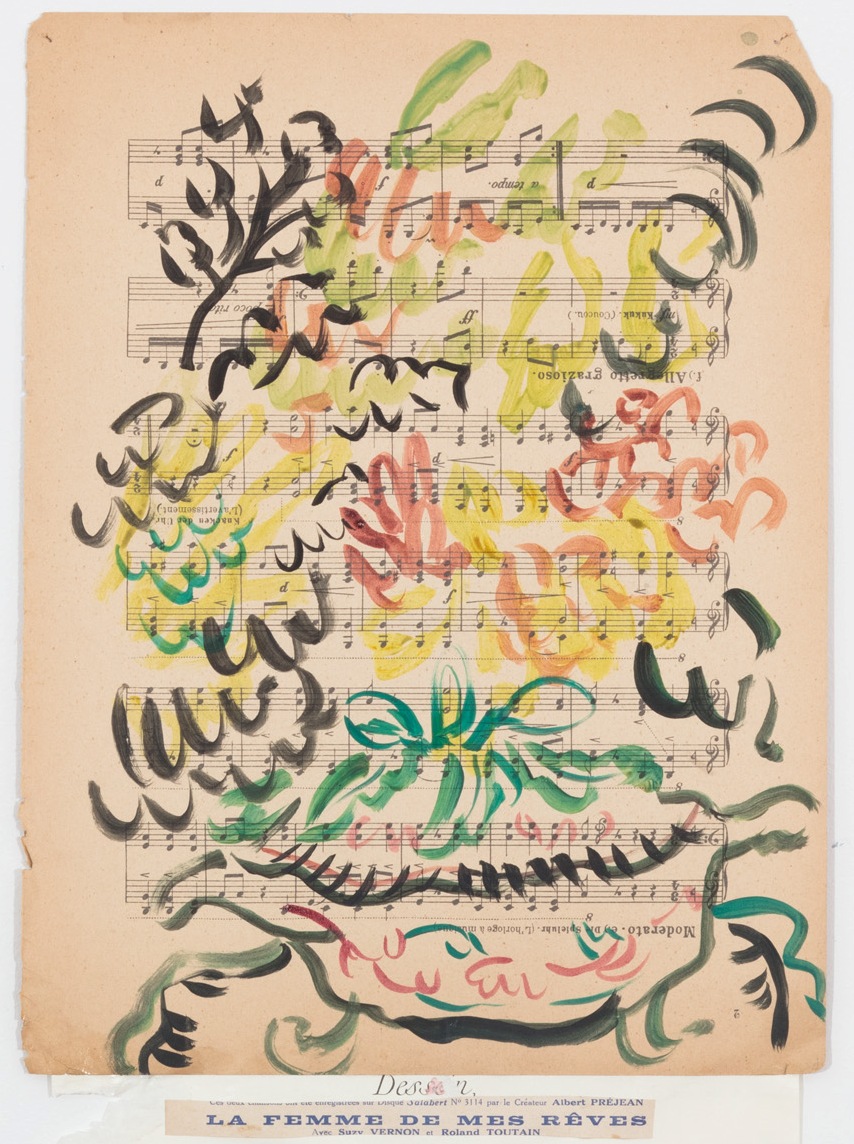 p f a tempo. p
poco rit. ff mf Kukuk. (Coucou.)
f.) Allegretto grazioso.
f p f
Knacken der Uhr.
(L'avertissement.)
8
p f
8
8
Moderato. e.) Die Spieluhr. (L'horloge à musique)
Ces deux chansons ont été enregistrées sur Disque Salabert Nº 3114 par le Créateur Albert PRÉJEAN
LA FEMME DE MES RÊVES
Avec Suzy VERNON et Roland TOUTAIN